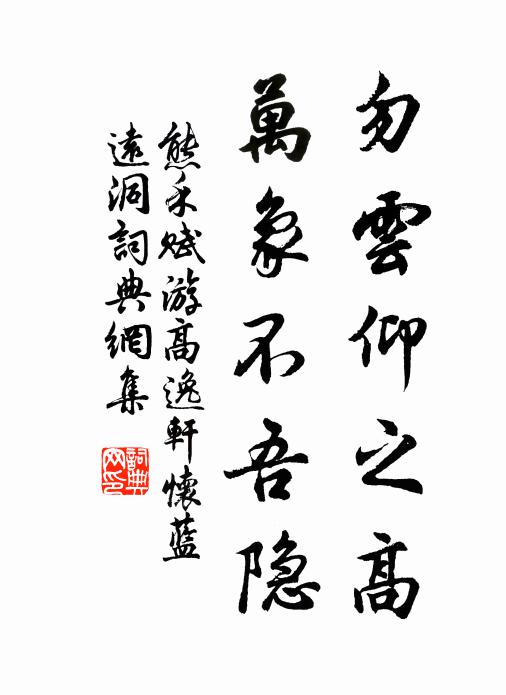 勿雲仰之高
萬象不吾隐
熊禾赋游高逸軒懷藍
遠洞詞典網集
詞典网印